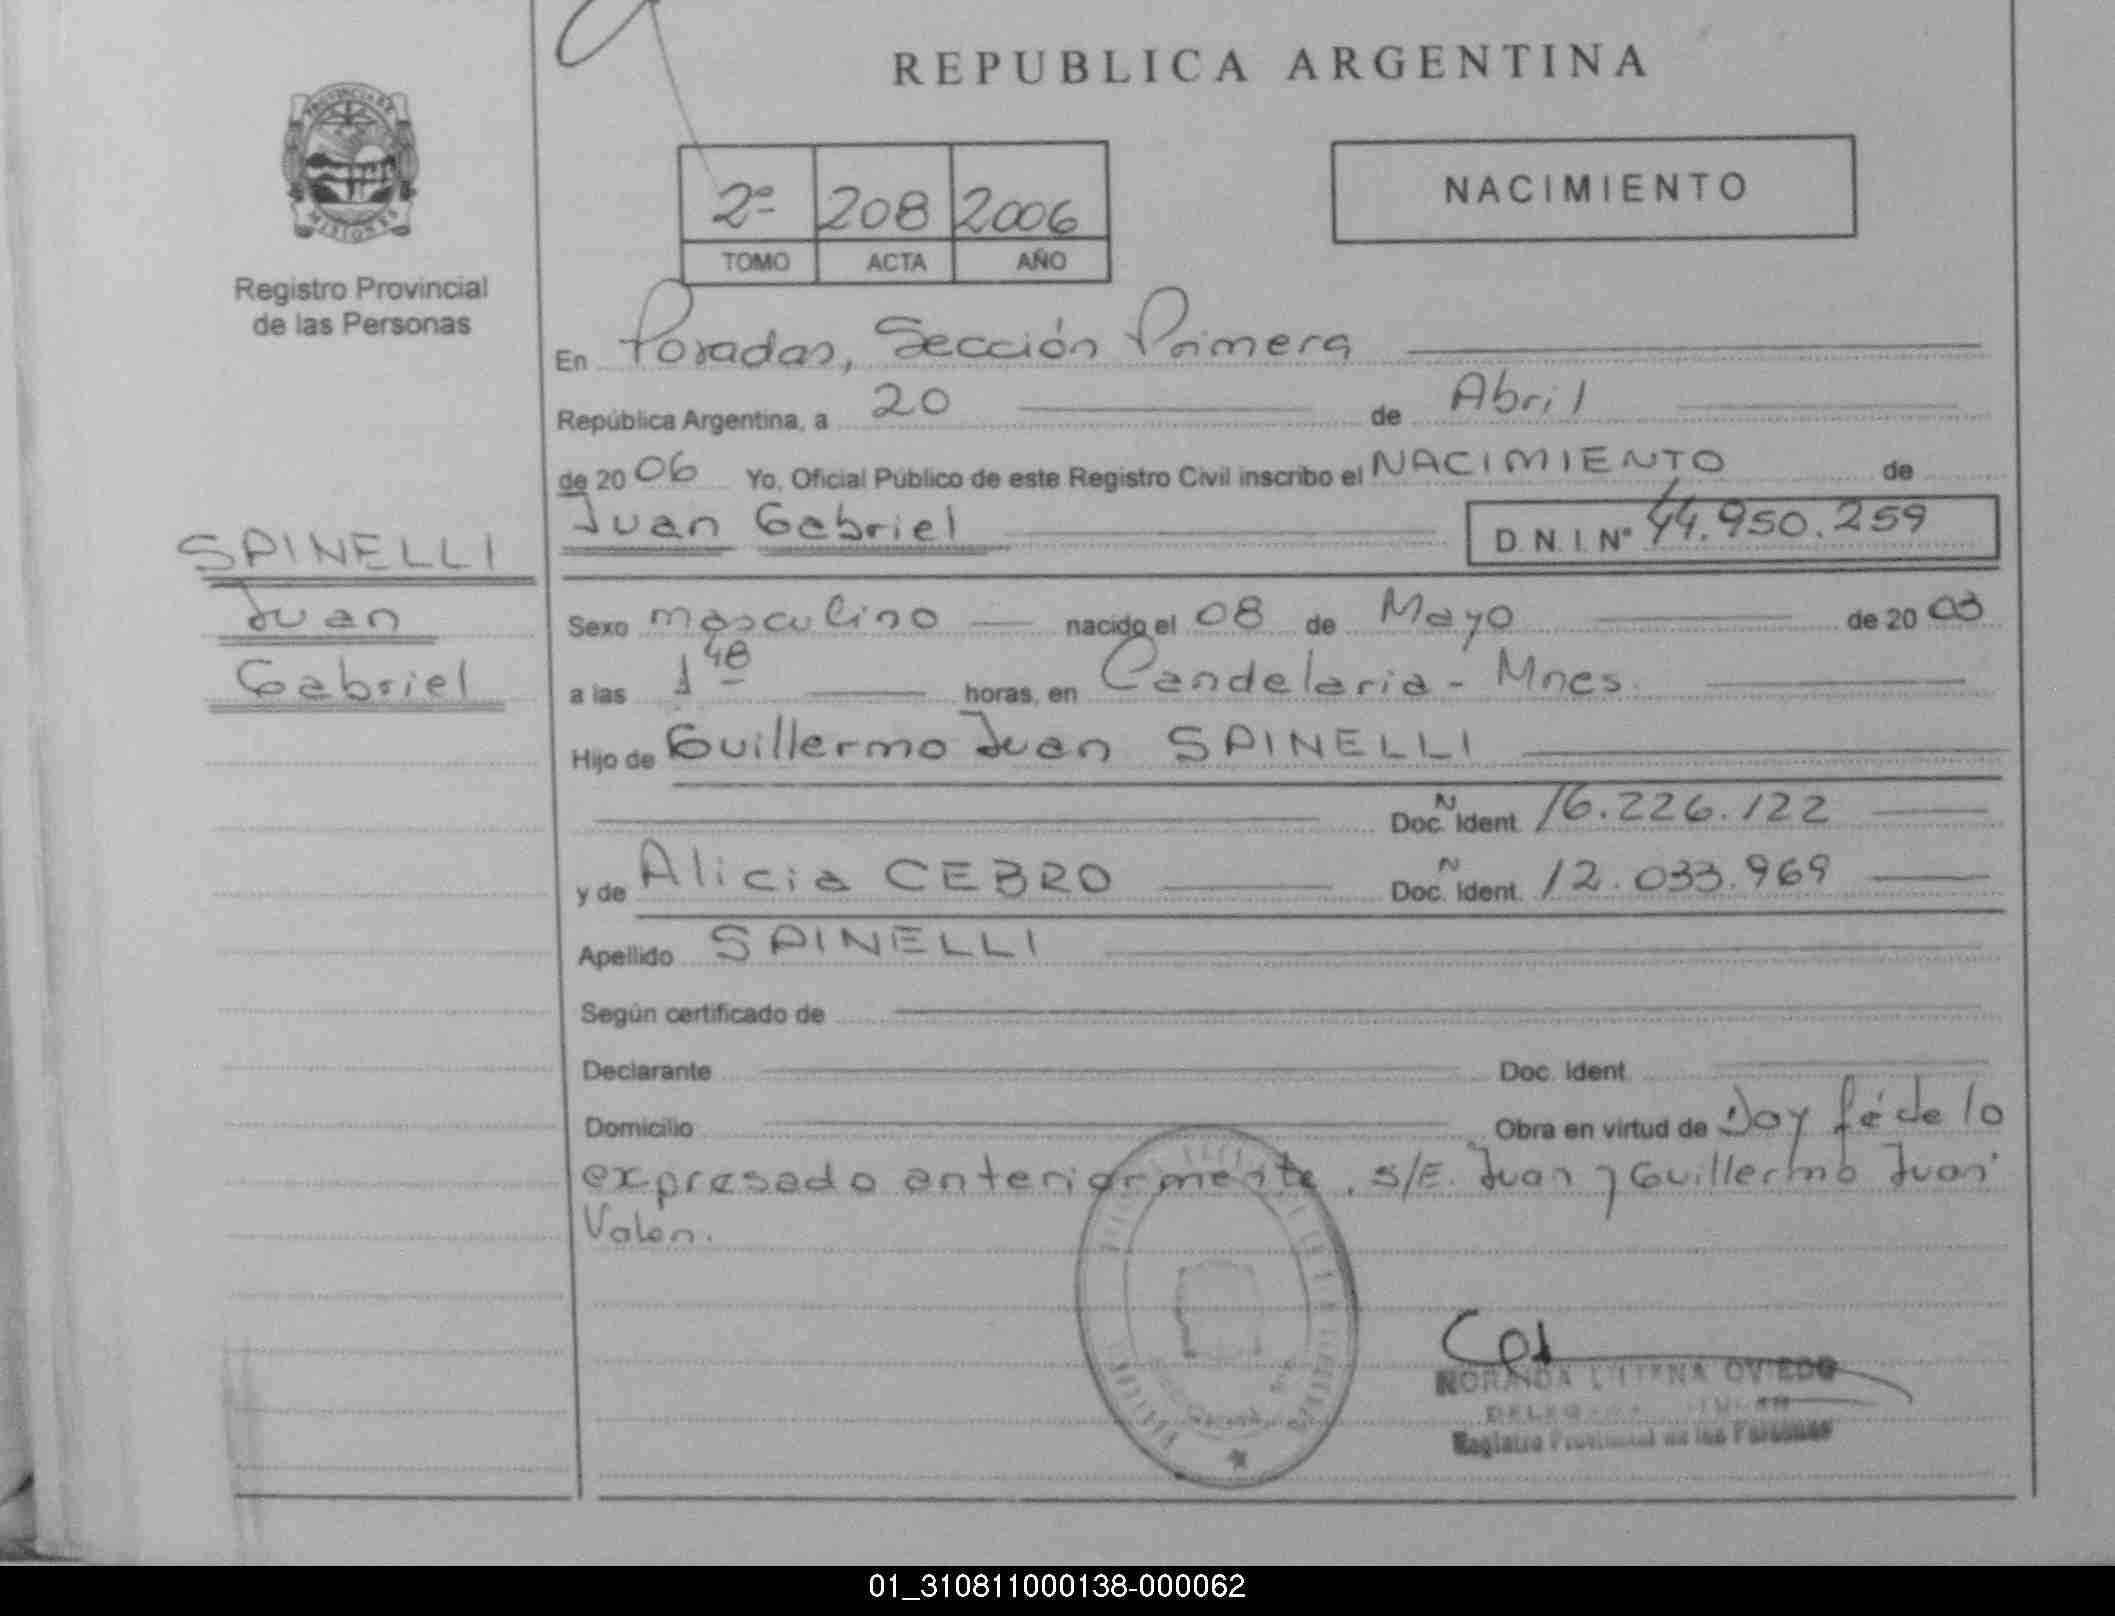 REPUBLICA ARGENTINA
PROVINCIA DE
MISIONES
Registro Provincial
de las Personas
2º 208 2006
TOMO ACTA AÑO
NACIMIENTO
En Posadas, Sección Primera
República Argentina, a 20 de Abril
de 20 06 Yo, Oficial Público de este Registro Civil inscribo el NACIMIENTO de
Juan Gabriel D.N.I. Nº 44.950.259
SPINELLI
Juan
Gabriel
Sexo masculino nacido el 08 de Mayo de 20 03
a las 1 48 horas, en Candelaria - Mnes.
Hijo de Guillermo Juan SPINELLI
Doc. Ident. 16.226.122
y de Alicia CEBRO Doc. Ident. 12.033.969
Apellido SPINELLI
Según certificado de
Declarante Doc. Ident.
Domicilio Obra en virtud de Doy fé de lo
expresado anteriormente. S/E. Juan y Guillermo Juan
Valen.
OVIEDO
Registro Provincial de las Personas
01_310811000138-000062